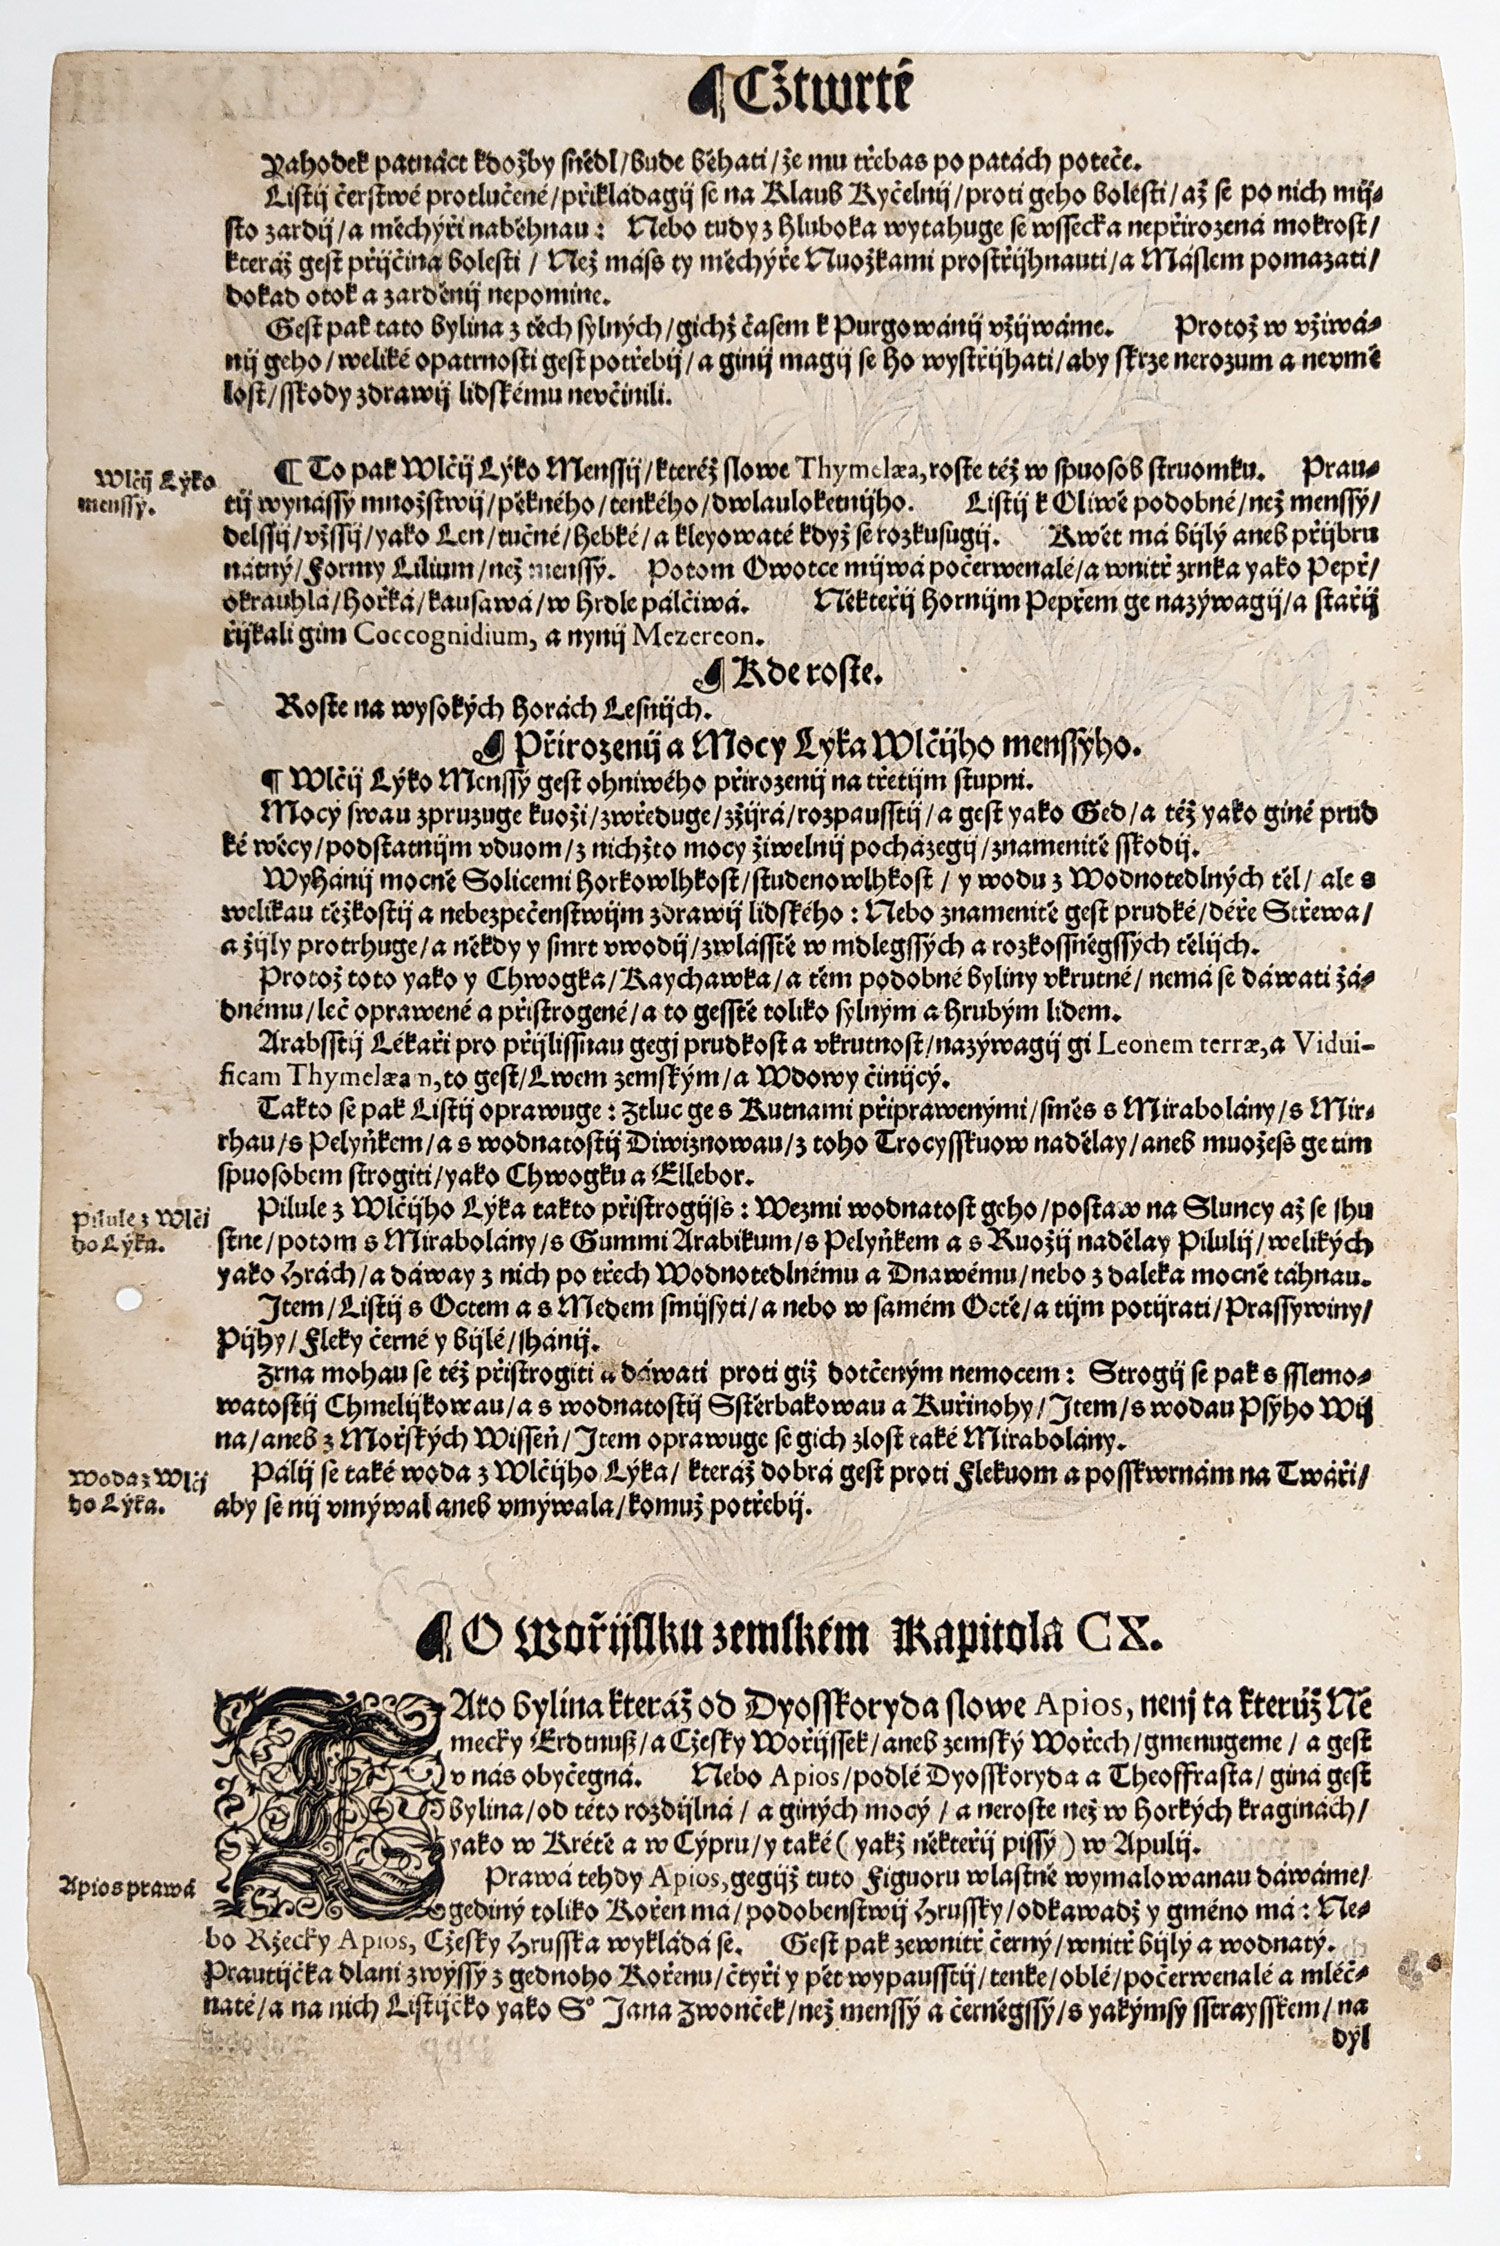 ¶ Cžtwrté
Yahodek patnáct kdožby snědl/bude běhati/že mu třebas po patách poteče.
Listij čerstwé protlučené/přikládagij se na Klaub Kyčelnij/proti geho bolesti/až se po nich mij-
sto zardij/a měchýři naběhnau: Nebo tudy z hluboka wytahuge se wssecka nepřirozená mokrost/
kteráž gest přijčina bolesti/ Než máss ty měchýře Nuožkami prostřijhnauti/a Máslem pomazati/
dokad otok a zarděnij nepomine.
Gest pak tato bylina z těch sylných/gichž časem k Purgowánij vžijwáme. Protož w vžiwá-
nij geho/weliké opatrnosti gest potřebij/a ginij magij se ho wystřijhati/aby skrze nerozum a nevmě
lost/sskody zdrawij lidskému nevčinili.
Wlčij Lýko
menssý.
¶ To pak Wlčij Lýko Menssij/kteréž slowe Thymelæa, roste též w spuosob struomku. Prau-
tij wynássý množstwij/pěkného/tenkého/dwlauloketnijho. Listij k Oliwě podobné/než menssý/
delssij/vžssij/yako Len/tučné/hebké/a kleyowaté když se rozkusugij. Kwět má bijlý aneb přijbru
nátný/Formy Lilium/než menssý. Potom Owotce mijwá počerwenalé/a wnitř zrnka yako Pepř/
okrauhlá/hořká/kausawá/w hrdle pálčiwá. Někteřij hornijm Pepřem ge nazýwagij/a stařij
řijkali gim Coccognidium, a nynij Mezereon.
¶ Kde roste.
Roste na wysokých horách Lesnijch.
¶ Přirozenij a Mocy Lyka Wlčijho menssýho.
¶ Wlčij Lýko Menssý gest ohniwého přirozenij na třetijm stupni.
Mocý swau zpruzuge kuoži/zwředuge/zžijrá/rozpausstij/a gest yako Ged/a též yako giné prud
ké wěcy/podstatnijm vduom/z nichžto mocy žiwelnij pocházegij/znamenitě sskodij.
Wyhánij mocně Solicemi horkowlhkost/studenowlhkost/ y wodu z Wodnotedlných těl/ ale s
welikau těžkostij a nebezpečenstwijm zdrawij lidského: Nebo znamenitě gest prudké/déře Střewa/
a žijly protrhuge/a někdy y smrt vwodij/zwlásstě w mdlegssých a rozkossněgssých tělijch.
Protož toto yako y Chwogka/Kaychawka/a těm podobné byliny vkrutné/nemá se dáwati žá-
dnému/leč oprawené a přistrogené/a to gesstě toliko sylným a hrubým lidem.
Arabsstij Lékaři pro přijlissnau gegj prudkost a vkrutnost/nazýwagij gi Leonem terræ, a Vidui-
ficam Thymelæam, to gest/Lwem zemským/a Wdowy činijcý.
Takto se pak Listij oprawuge: Ztluc ge s Kutnami připrawenými/směs s Mirabolány/s Mir-
rhau/s Pelyňkem/a s wodnatostij Diwiznowau/z toho Trocysskuow nadělay/aneb muožess ge tim
spuosobem strogiti/yako Chwogku a Ellebor.
Pilule z Wlči
ho Lýka.
Pilule z Wlčijho Lýka takto přistrogijss: Wezmi wodnatost geho/postaw na Sluncy až se shu
stne/potom s Mirabolány/s Gummi Arabikum/s Pelyňkem a s Ruožij nadělay Pilulij/welikých
yako Hrách/a dáway z nich po třech Wodnotedlnému a Dnawému/nebo z daleka mocně táhnau.
Jtem/Listij s Octem a s Medem smijsyti/a nebo w samém Octě/a tijm potijrati/Prassywiny/
Pijhy/Fleky černé y bijlé/shánij.
Zrna mohau se též přistrogiti a dáwati proti giž dotčeným nemocem: Strogij se pak s sslemo-
watostij Chmelijkowau/a s wodnatostij Sstěrbakowau a Kuřinohy/Jtem/s wodau Psýho Wij
na/aneb z Mořských Wissěň/Jtem oprawuge se gich zlost také Mirabolány.
Woda z Wlčij
ho Lýka.
Pálij se také woda z Wlčijho Lýka/ kteráž dobrá gest proti Flekuom a posskwrnám na Twáři/
aby se nij vmýwal aneb vmýwala/komuž potřebij.
¶ O Wořijssku zemském Kapitola CX.
TAto bylina kteráž od Dyosskoryda slowe Apios, nenj ta kterúž Ně
mecky Erdtnuß/a Cžesky Wořijssek/aneb zemský Wořech/gmenugeme/ a gest
v nás obyčegná. Nebo Apios/podlé Dyosskoryda a Theoffrasta/giná gest
bylina/od této rozdijlná/ a giných mocý/ a neroste než w horkých kraginách/
yako w Krétě a w Cýpru/y také (yakž někteřij pissý) w Apulij.
Apios prawá
Prawá tehdy Apios, gegijž tuto Figuoru wlastně wymalowanau dáwáme/
gediný toliko Kořen má/podobenstwij Hrussky/odkawadž y gméno má: Ne-
bo Ržecky Apios, Cžesky Hrusska wykládá se. Gest pak zewnitř černý/wnitř bijlý a wodnatý.
Prautijčka dlani zwýssý z gednoho Kořenu/čtyři y pět wypausstij/tenke/oblé/počerwenalé a mléč-
naté/a na nich Listijčko yako S° Jana Zwonček/než menssý a černěgssý/s yakýmsy sstraysskem/na
dýl